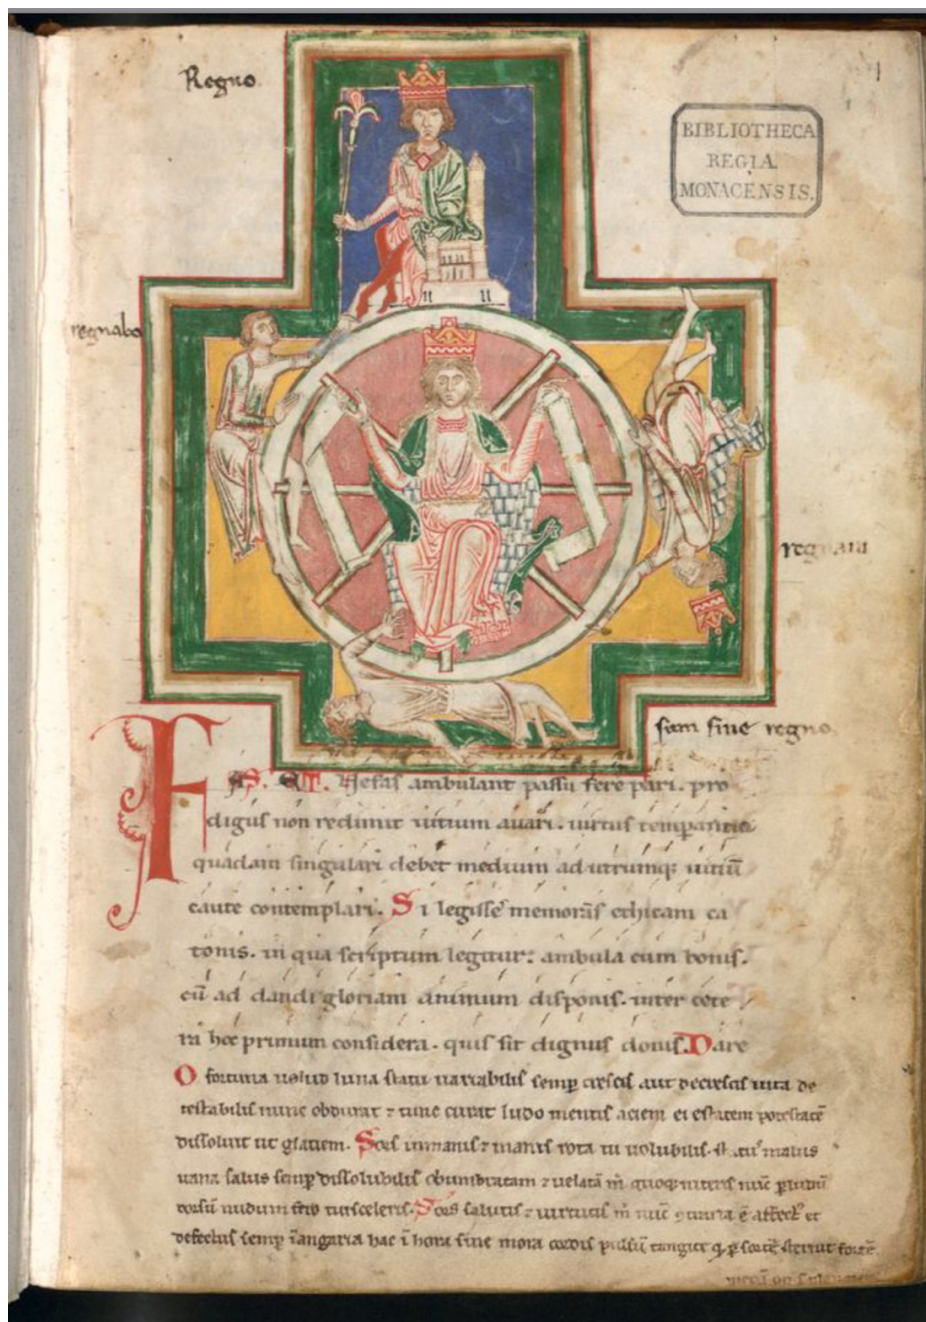 Regno.
1
BIBLIOTHECA
REGIA
MONACENSIS.
regnabo
regnaui
sum sine regno.
FAS. ET. Nefas ambulant passu fere pari. pro
digus non redimit uitium auari. uirtus temperantia
quadam singulari debet medium ad utrumq; uitiū
caute contemplari. Si legisse memoras ethicam ca
tonis. in qua scriptum legitur: ambula cum bonis.
cū ad dandi gloriam animum disponis. inter cete
ra hoc primum considera. quis sit dignus donis. Dare
O fortuna uelud luna statu uariabilis semp crescis aut decrescis uita de
testabilis nunc obdurat ⁊ tunc curat ludo mentis aciem egestatem potestatē
dissoluit ut glatiem. Sors inmanis ⁊ inanis rota tu uolubilis. status malus
uana salus semp dissolubilis obumbratam ⁊ uelatā m quoq; niteris nūc p ludū
dorsū nudum fero tui sceleris. Sors salutis ⁊ uirtutis m nūc ꝯtraria ē affect et
defectus semp ī angaria hac ī hora sine mora cordis pulsū tangite